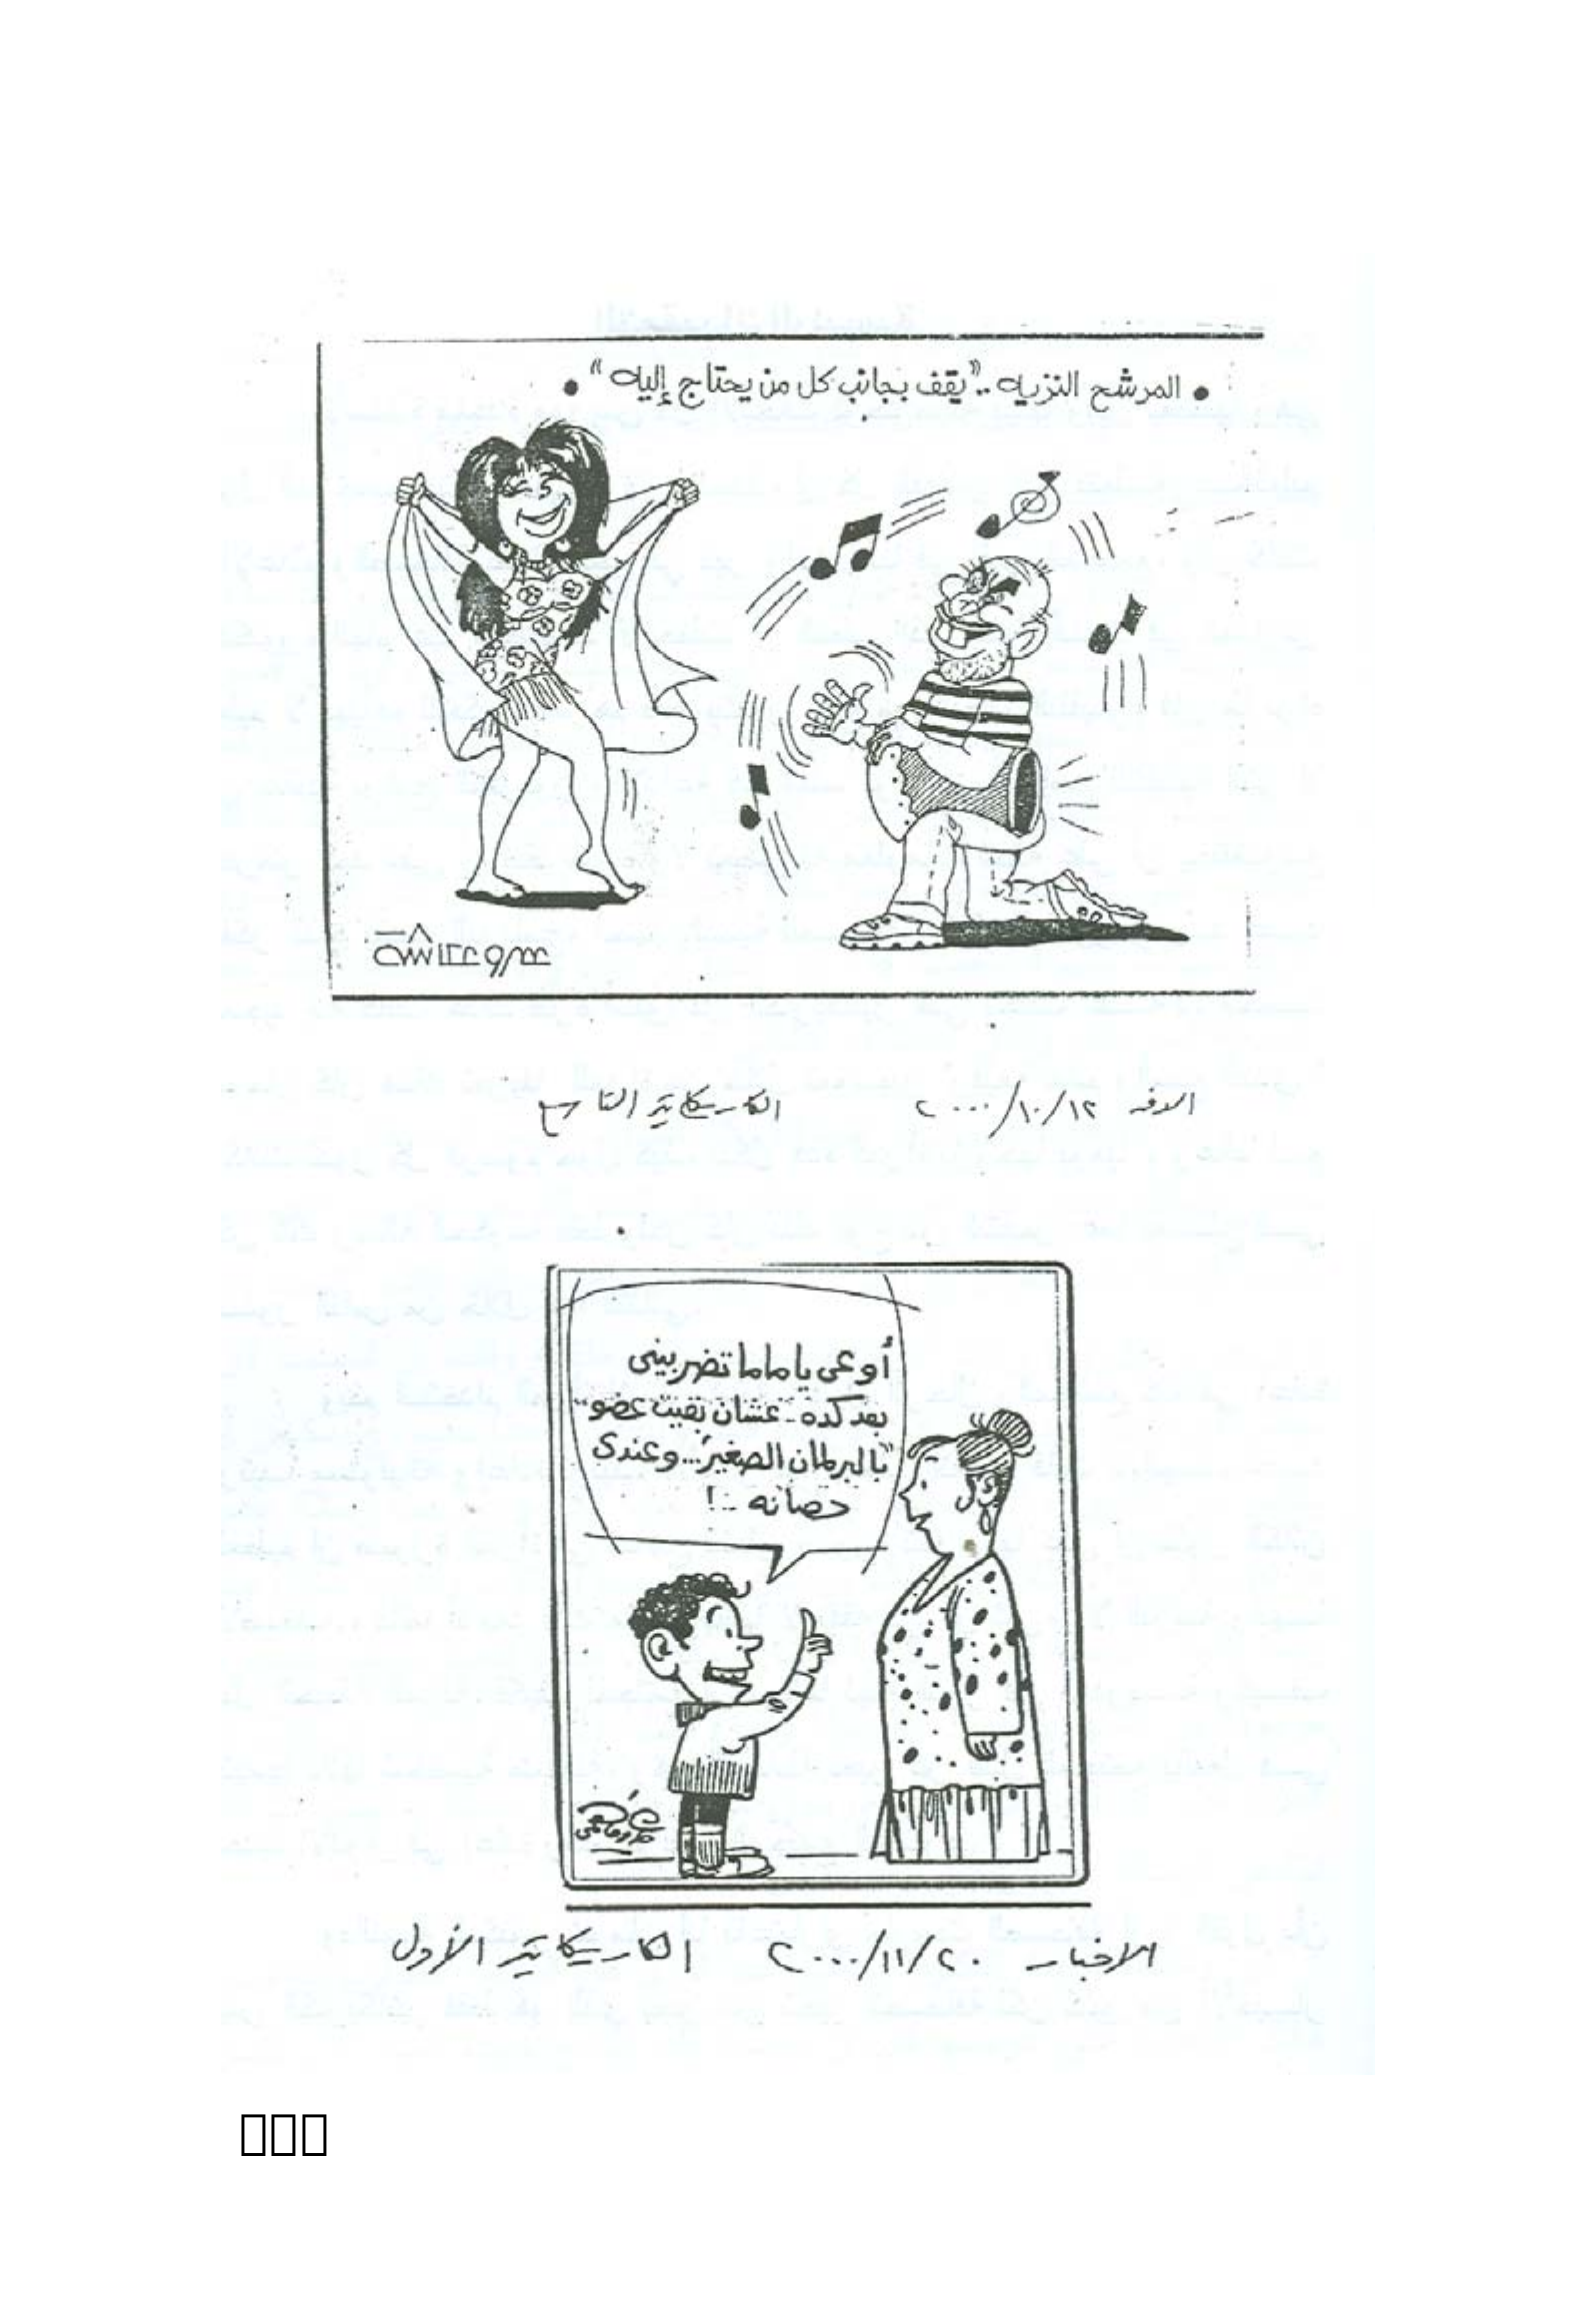 • المرشح النزيه .. "يقف بجانب كل من يحتاج إليه" •
عمرو عكاشة
١٢/١٠/٢٠٠٠ الكاريكاتير التاسع
أوعى ياماما تضربينى
بعد كده .. عشان بقيت عضو
"بالبرلمان الصغير" .. وعندى
حصانه .. !
الاخبار ٢٠/١١/٢٠٠٠ الكاريكاتير الأول